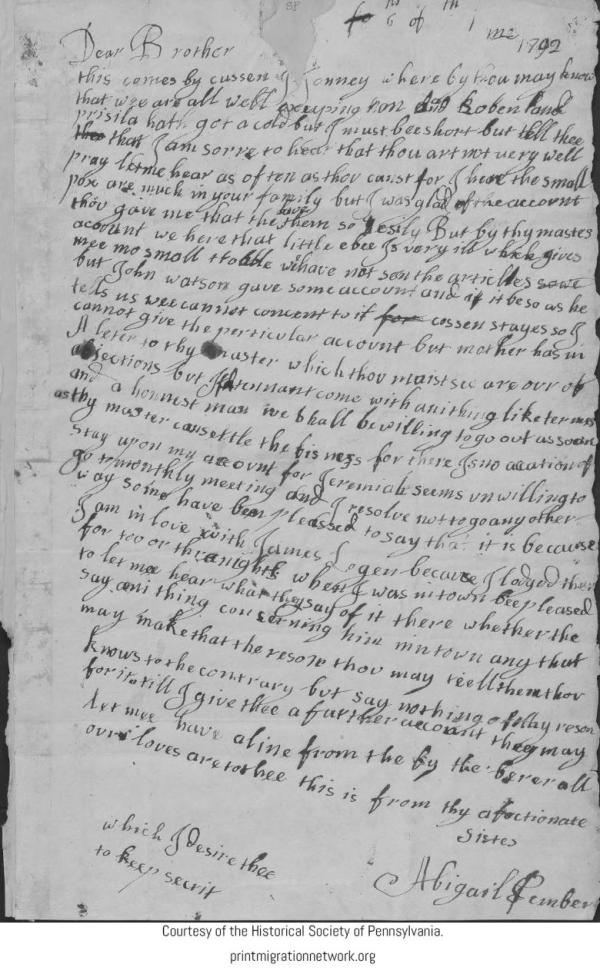 6 of 1 1702
Dear Brother
this comes by cussen J Jonney where by thou may know
that wee are all well excepting ron and Roben and
prisila hath got a cold but I must bee short but tell thee
that I am sorre to hear that thou art not very well
pray let me hear as often as thou canst for I here the small
pox are much in your family but I was glad of the account
thou gave me that the have them so Eesily But by thy mastes
acount we here that little ebee Is very ill which gives
mee mo small troable we have not seen the articlles
but John watson gave some account and if it be so as he
tells us wee cannot concent to it for cossen stayes so I
cannot give the perticular account but mother has in
A leter to thy master which thou maist see are our ob
Jections but If tennant come with anithing like termes
and a honnest man we shall be willing to go out as soone
as thy master can settle the bisness for there Is no acation of
stay upon my account for Jeremiah seems unwilling to
go to monthly meeting and I resolve not to go any other
way some have ben pleassed to say that it is because
I am in love with James Logen because I lodged there
for too or thre nights when I was in town bee pleased
to let mee hear what they say of it there whether the
say ani thing concerning him in town any that
may make that the reson thou may tell them thou
knows to the contrary but say nothing of thy reson
for it till I give thee a further account they may
Let mee have a line from the by the berer all
our loves are to thee this is from thy afectionate
Sister
Abigail Pember
which I desire thee
to keep secrit
Courtesy of the Historical Society of Pennsylvania.
printmigrationnetwork.org